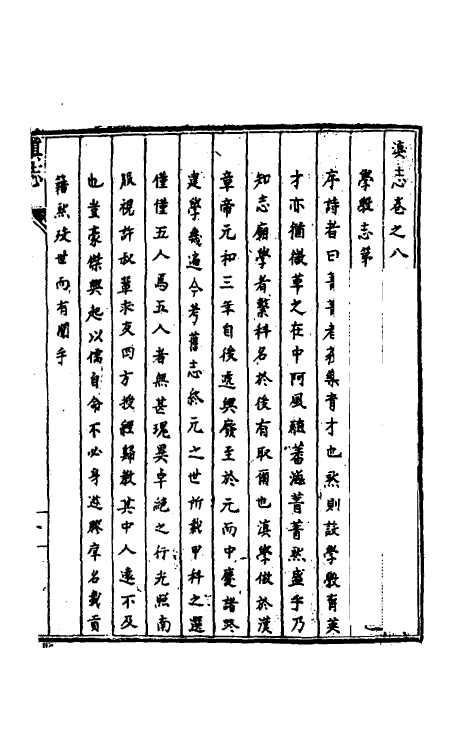 滇志卷之八
學校志第
序詩者曰菁菁者莪樂育才也然則設學教育英
才亦猶微草之在中阿風雖蕃滋菁菁然盛乎乃
知志廟學者繫科名於後有取爾也滇學倣於漢
章帝元和三年自後迭興廢至於元而中慶諸路
建學幾遍今考舊志終元之世所載甲科之選
僅僅五人焉五人者無甚瑰異卓絕之行光照南
服視許叔輩求友四方授經歸教其中人遠不及
也豈豪傑興起以儒自命不必身遊膠庠名載貢
籍然後世而有聞乎
滇志